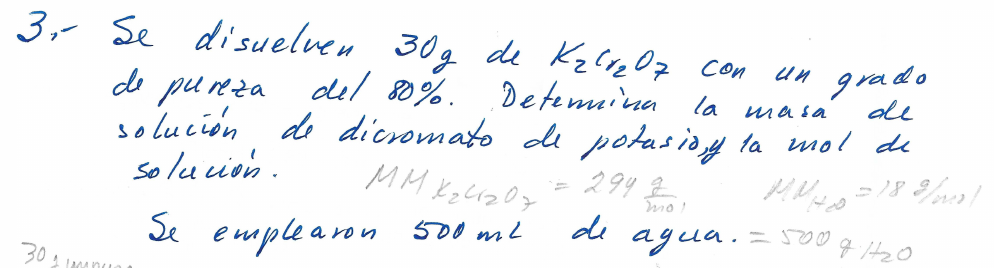 3.- Se disuelven 30g de K2Cr2O7 con un grado
de pureza del 80%. Determina la masa de
solución de dicromato de potasio, y la mol de
solución.
MM K2Cr2O7 = 294 g/mol MM H2O = 18 g/mol
Se emplearon 500 mL de agua. = 500 g H2O
30 g